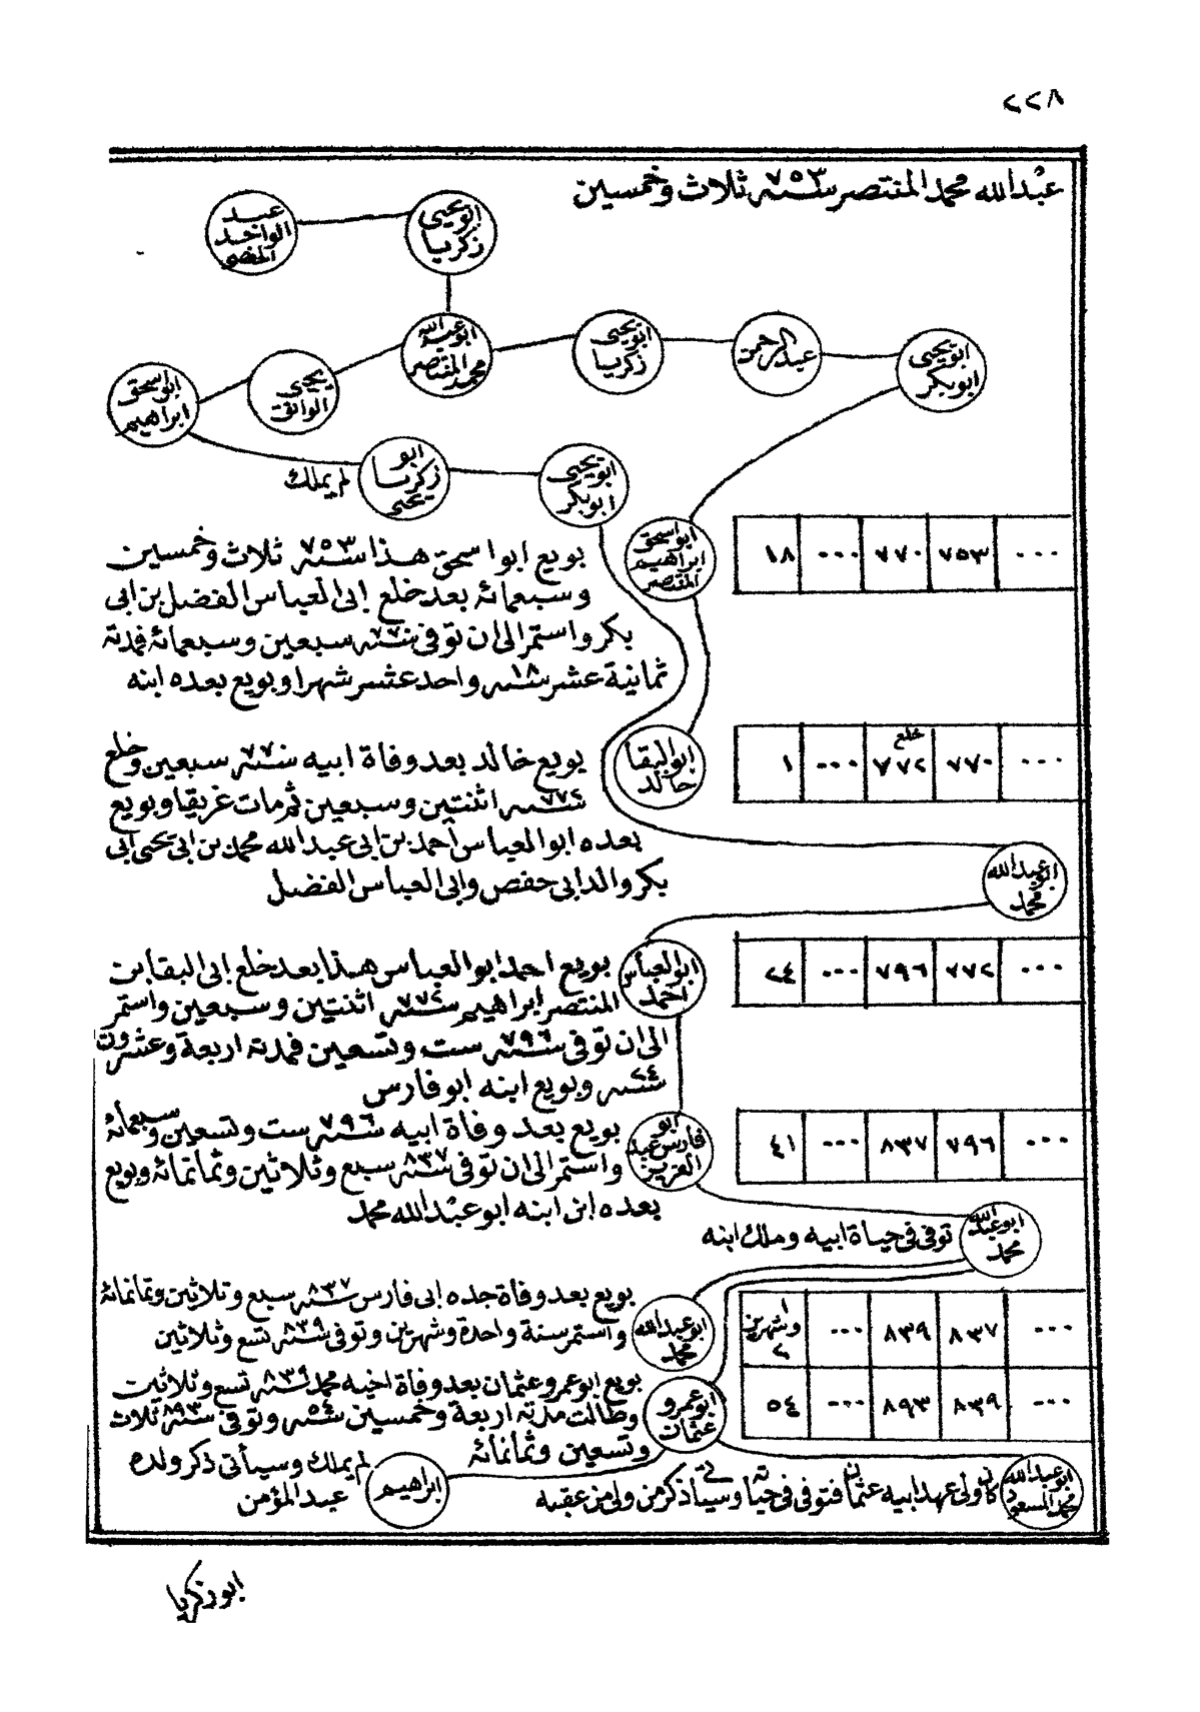 ٢٢٨
عبدالله محمد المنتصر سنة ٧٥٣ ثلاث وخمسين
ابو يحيى زكريا
عبد الواحد الحفصى
ابو عبدالله محمد المنتصر
ابو يحيى زكريا
عبدالرحمن
ابو يحيى ابوبكر
يحيى الواثق
ابو اسحق ابراهيم
ابو زكريا يحيى
لم يملك
ابو يحيى ابوبكر
ابو اسحق ابراهيم المنتصر
٠٠٠ ٧٥٣ ٧٧٠ ٠٠٠ ١٨
بويع ابو اسحق هذا سنة ٧٥٣ ثلاث وخمسين
وسبعمائة بعد خلع ابى العباس الفضل بن ابى
بكر واستمر الى ان توفى سنة ٧٧٠ سبعين وسبعمائة فمدته
ثمانية عشر ١٨ سنة واحد عشر شهرا وبويع بعده ابنه
ابو البقا خالد
٠٠٠ ٧٧٠ خلع ٧٧٢ ٠٠٠ ١
بويع خالد بعد وفاة ابيه سنة ٧٧٠ سبعين وخلع
سنة ٧٧٢ اثنتين وسبعين ثم مات غريقا وبويع
بعده ابو العباس احمد بن ابى عبدالله محمد بن ابى يحيى ابى
بكر والد ابى حفص وابى العباس الفضل
ابو عبدالله محمد
ابو العباس احمد
٠٠٠ ٧٧٢ ٧٩٦ ٠٠٠ ٢٤
بويع احمد ابو العباس هذا بعد خلع ابى البقا بن
المنتصر ابراهيم سنة ٧٧٢ اثنتين وسبعين واستمر
الى ان توفى سنة ٧٩٦ ست وتسعين فمدته اربعة وعشرون
٢٤ سنة وبويع ابنه ابو فارس
ابو فارس عبد العزيز
٠٠٠ ٧٩٦ ٨٣٧ ٠٠٠ ٤١
بويع بعد وفاة ابيه سنة ٧٩٦ ست وتسعين وسبعمائة
واستمر الى ان توفى سنة ٨٣٧ سبع وثلاثين وثمانمائة وبويع
بعده ابن ابنه ابو عبدالله محمد
ابو عبدالله محمد
توفى فى حياة ابيه وملك ابنه
ابو عبدالله محمد
٠٠٠ ٨٣٧ ٨٣٩ ٠٠٠ ١ وشهرين ٢
بويع بعد وفاة جده ابى فارس سنة ٨٣٧ سبع وثلاثين وثمانمائة
واستمر سنة واحدة وشهرين وتوفى سنة ٨٣٩ تسع وثلاثين
ابو عمرو عثمان
٠٠٠ ٨٣٩ ٨٩٣ ٠٠٠ ٥٤
بويع ابو عمرو عثمان بعد وفاة اخيه محمد سنة ٨٣٩ تسع وثلاثين
وطالت مدته اربعة وخمسين ٥٤ سنة وتوفى سنة ٨٩٣ ثلاث
وتسعين وثمانمائة
ابو عبدالله محمد المسعود
كان ولى عهد ابيه عثمان فتوفى فى حياته وسيأتى ذكر من ولى من عقبه
ابراهيم
لم يملك وسيأتى ذكر ولده
عبد المؤمن
ابو زكريا